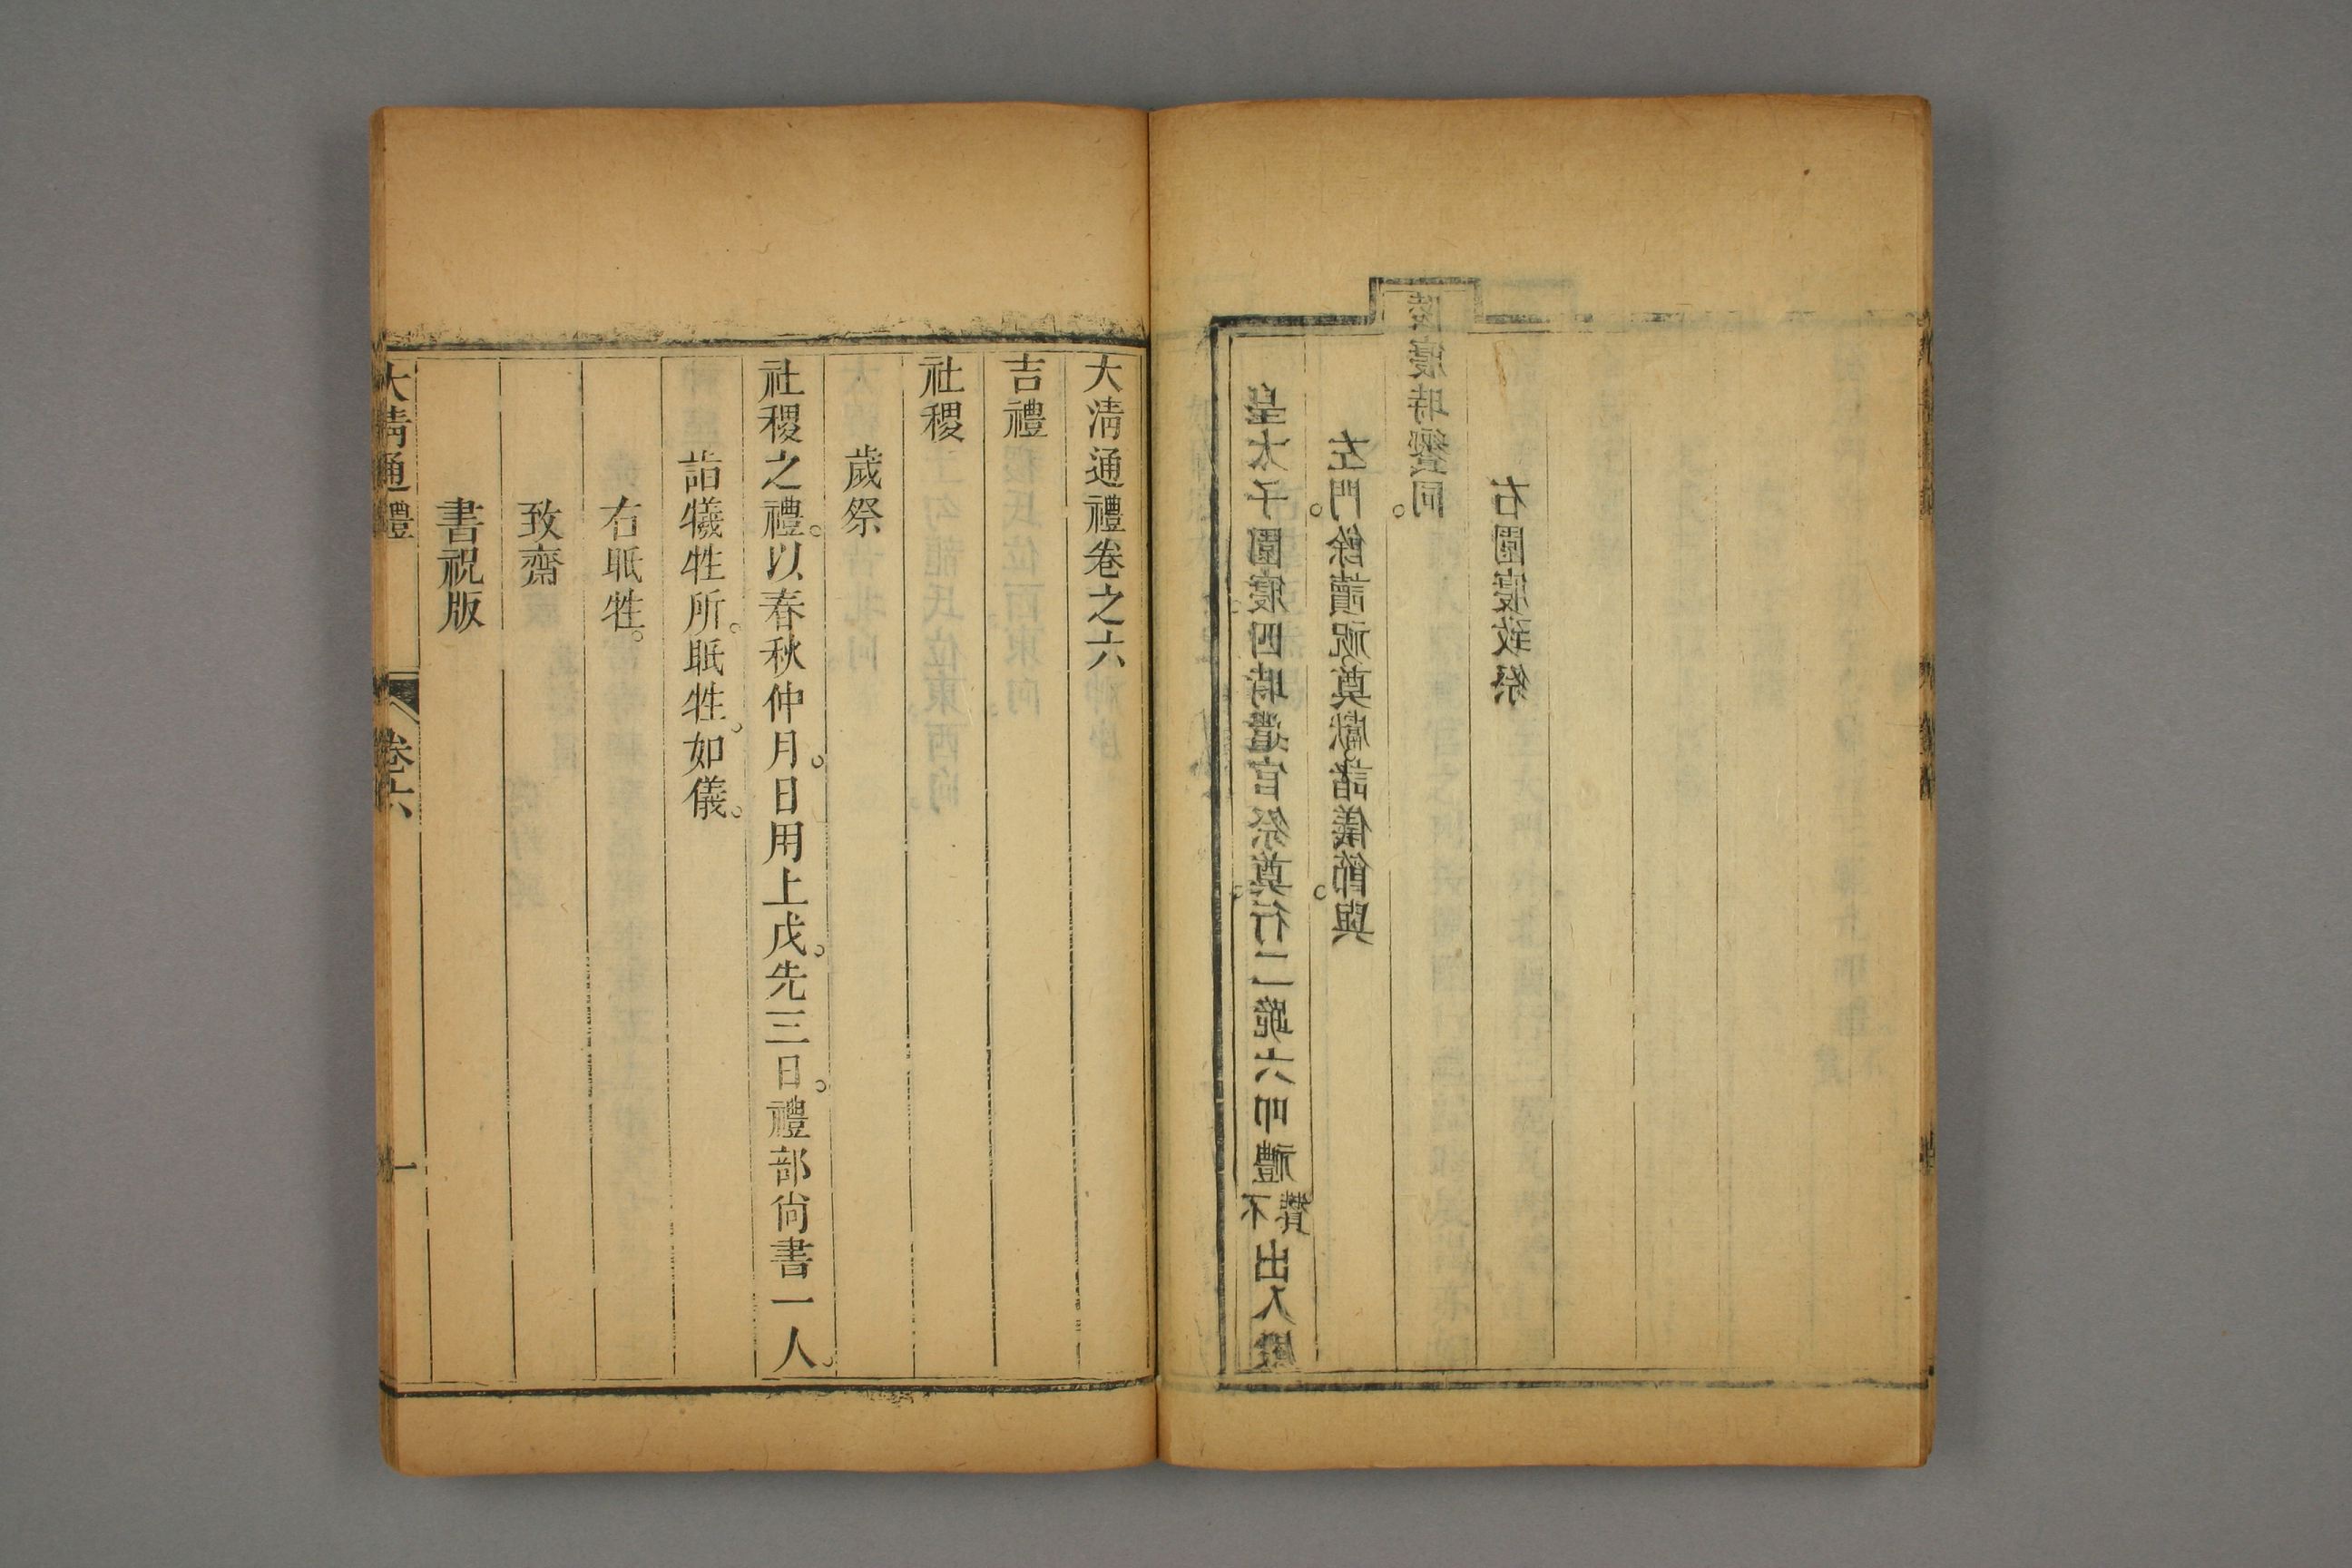 皇太子園寢。四時遣官祭奠。行二跪六叩禮不贊出入殿
左門。餘讀祝奠獻諸儀節。與
陵寢時饗同。
右園寢致祭
大清通禮卷之六
吉禮
社稷
歲祭
社稷之禮。以春秋仲月。日用上戊。先三日。禮部尚書一人。
詣犧牲所。眡牲。如儀。
右眡牲。
致齋
書祝版
大清通禮
卷六
一